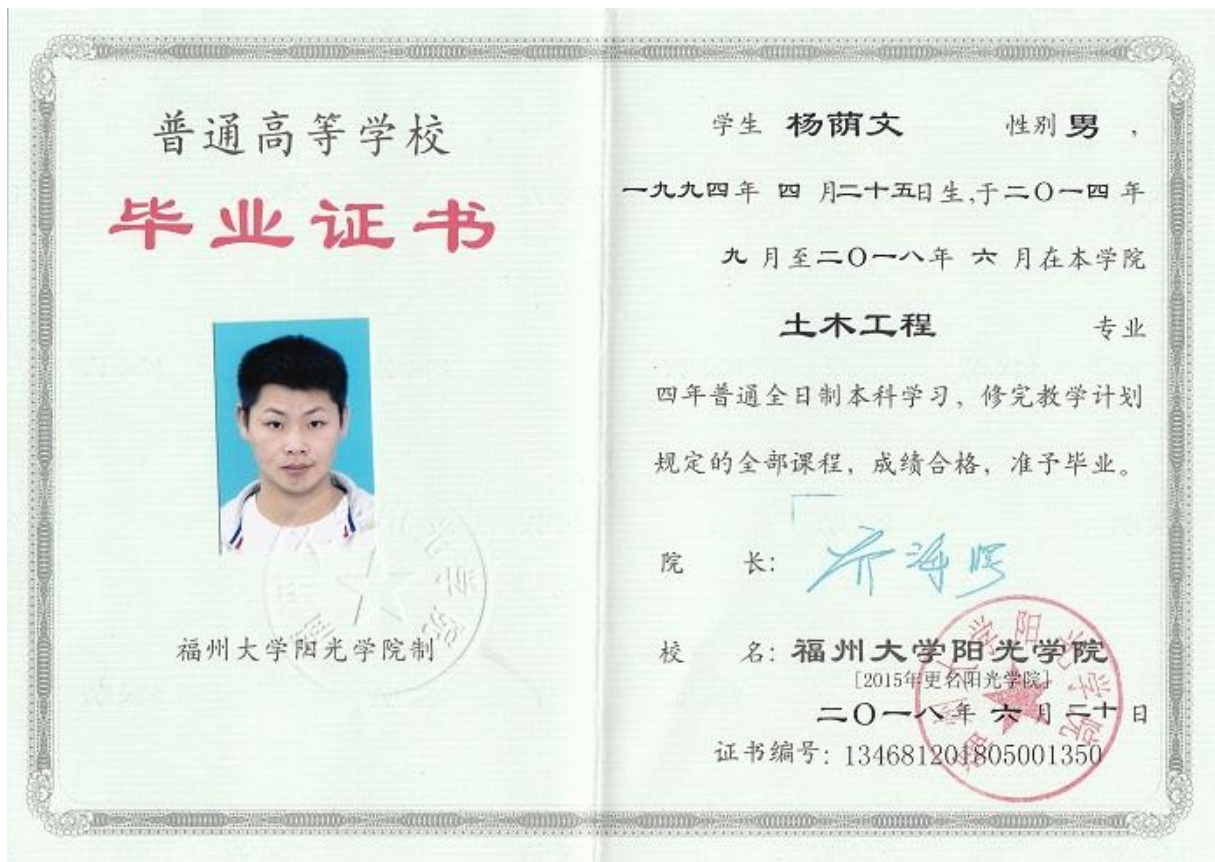 普通高等学校
毕业证书
福州大学阳光学院制
学生 杨荫文 性别 男 ,
一九九四年 四 月二十五日生,于二〇一四 年
九 月至二〇一八年 六 月在本学院
土木工程 专业
四年普通全日制本科学习，修完教学计划
规定的全部课程，成绩合格，准予毕业。
院 长:
校 名: 福州大学阳光学院
[2015年更名阳光学院]
二〇一八年 六 月 二十 日
证书编号: 134681201805001350
福州大学阳光学院